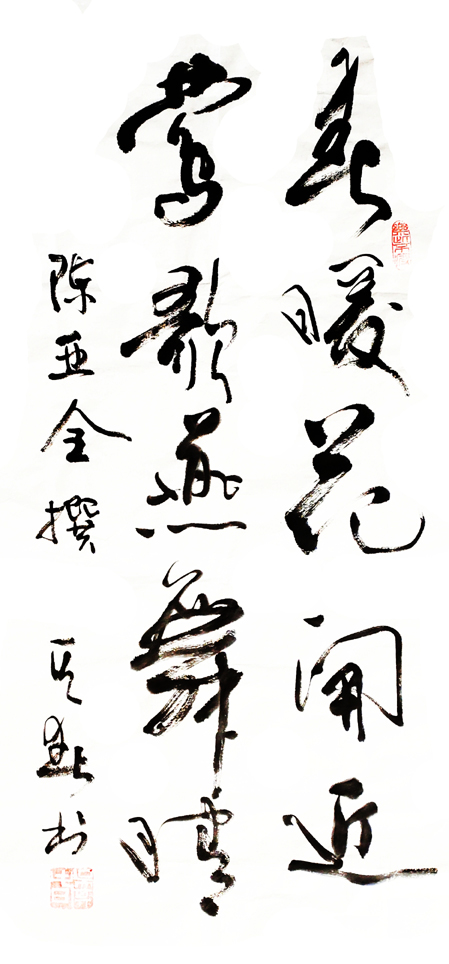 春暖花開近
莺歌燕舞晴
陈亚全撰 书